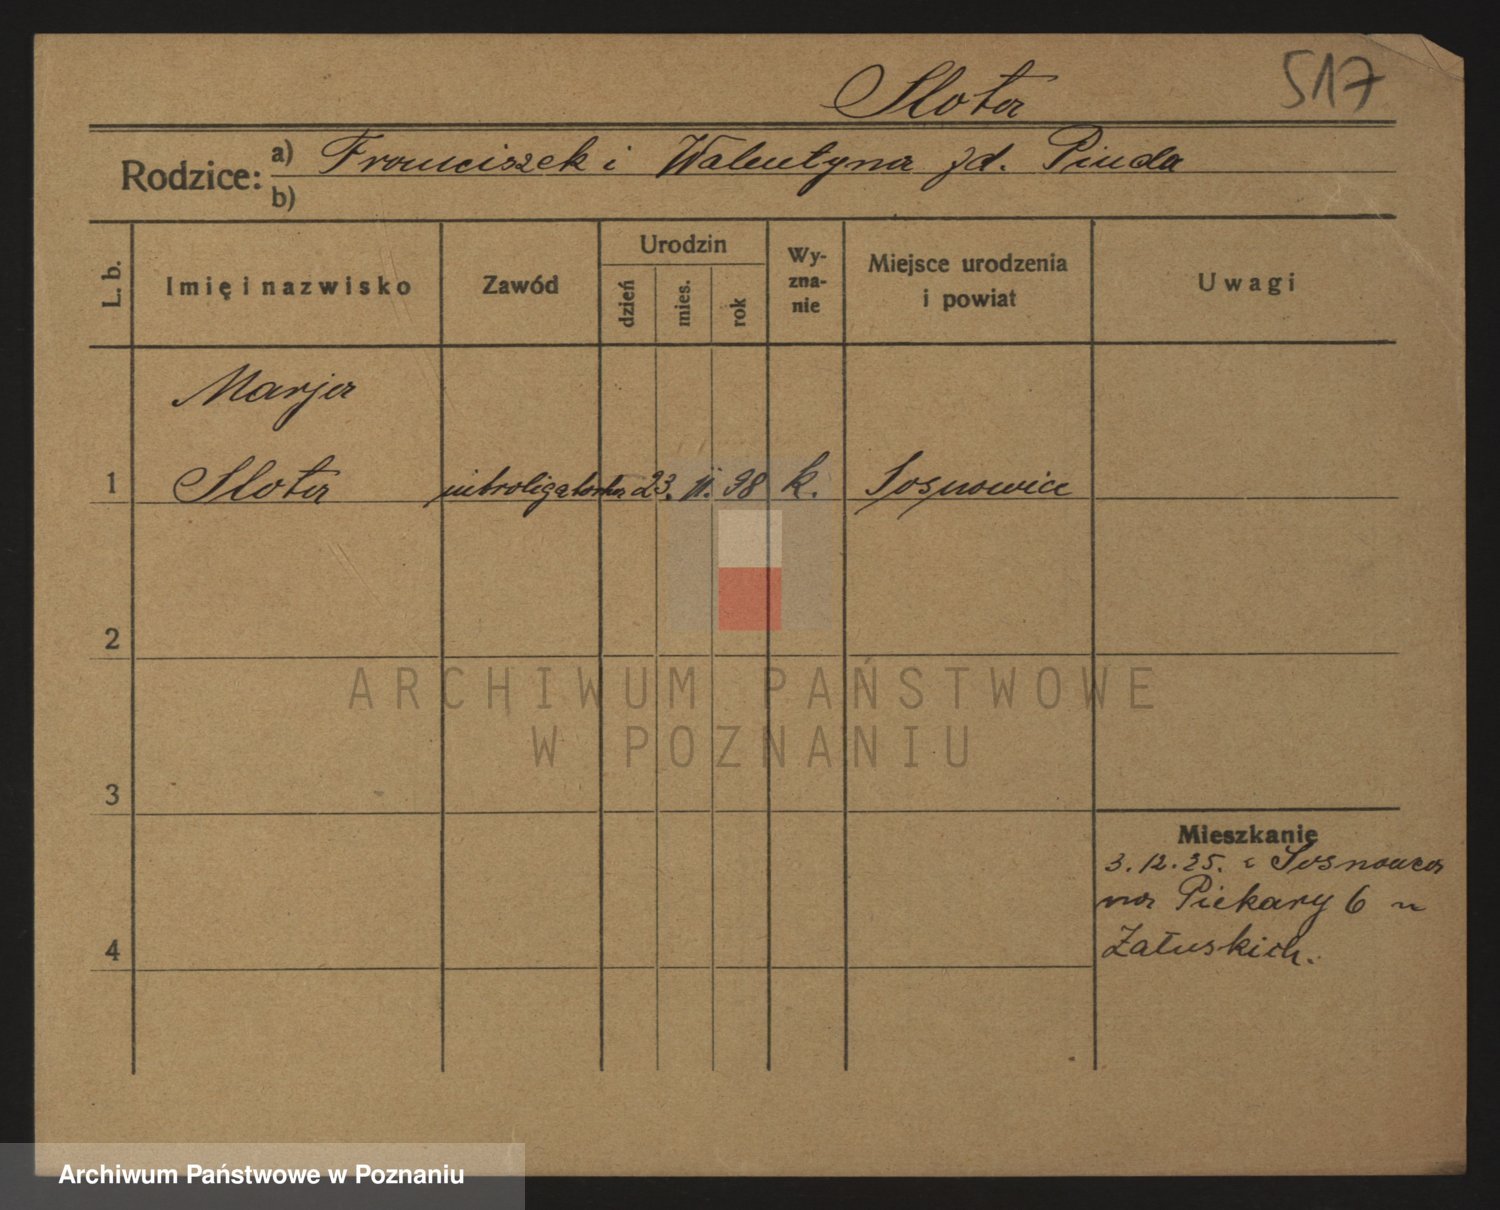 517
Slota
Rodzice: a) Franciszek i Walentyna zd. Pinda
b)
L. b.
Imię i nazwisko
Zawód
Urodzin
dzień
mies.
rok
Wy-
zna-
nie
Miejsce urodzenia
i powiat
Uwagi
Marja
1 Slota introligatorka 23. II. 98 k. Sosnowice
2
3
4
Mieszkanie
3.12.25. z Sosnowca
na Piekary 6 u
Załuskich.
ARCHIWUM PAŃSTWOWE
W POZNANIU
Archiwum Państwowe w Poznaniu